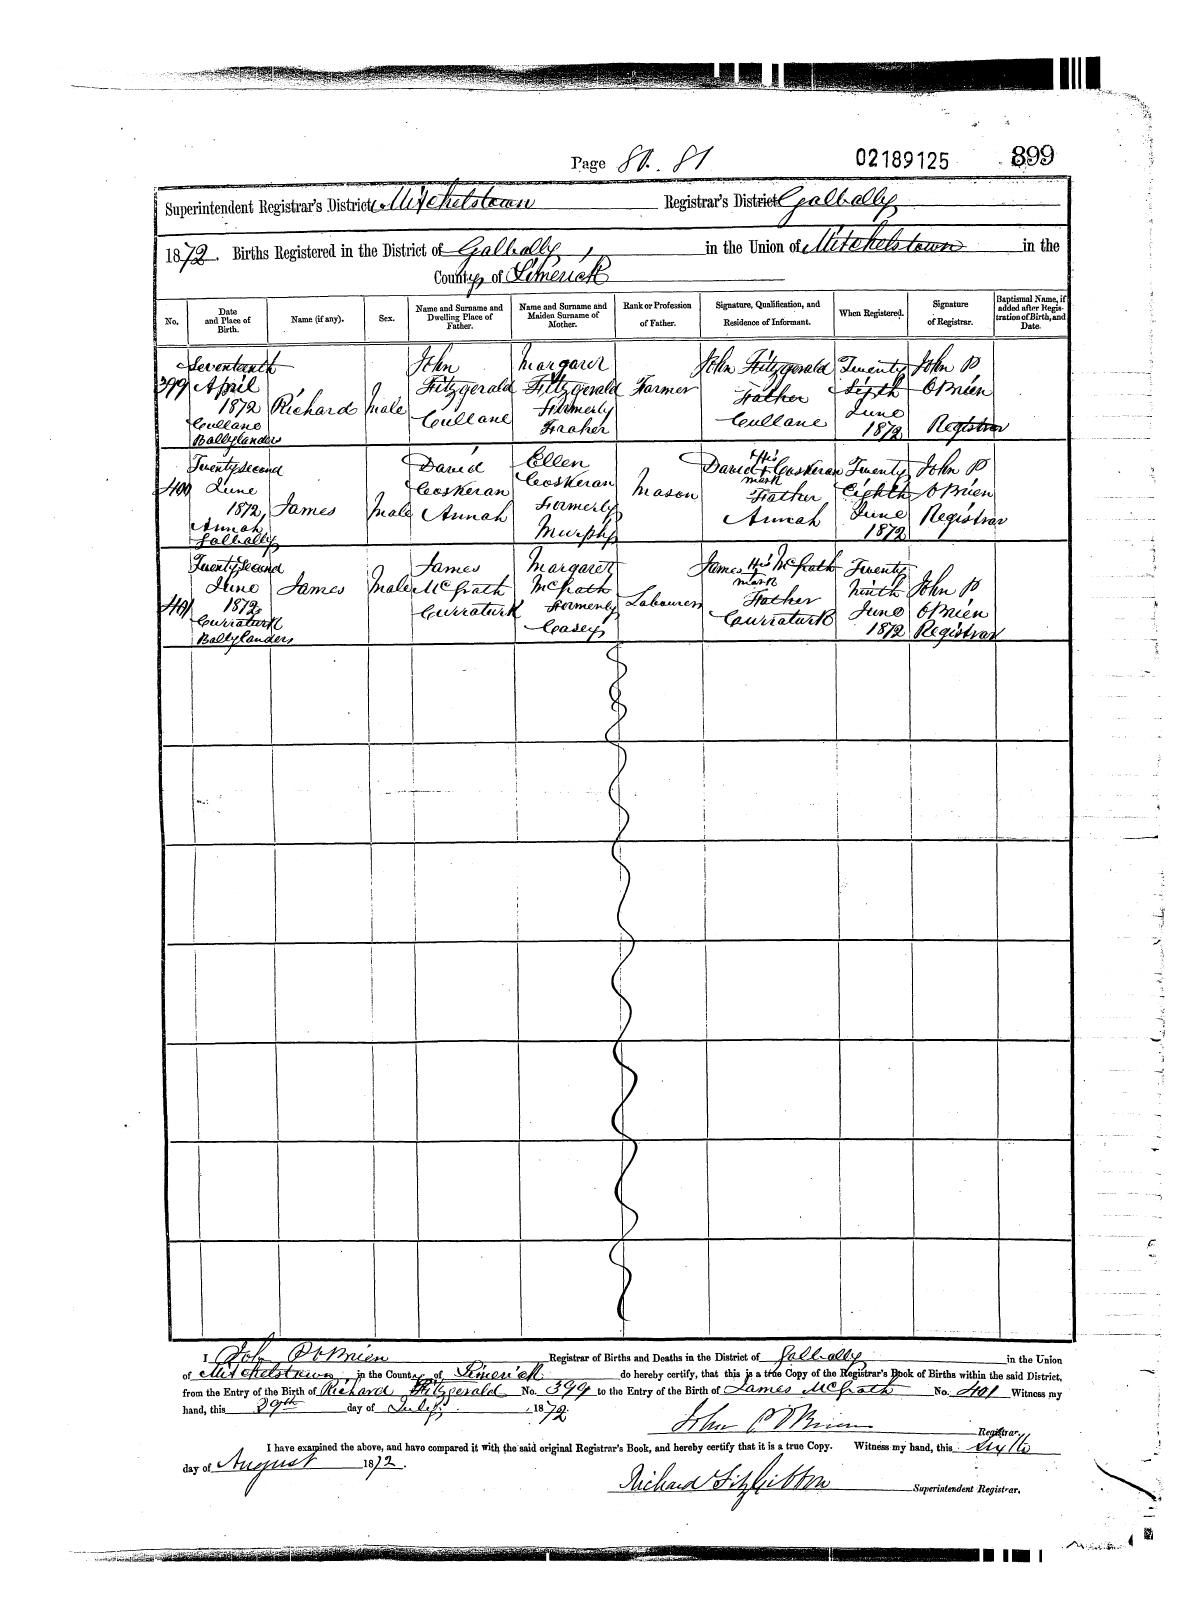 Page 80. 81 02189125 899
Superintendent Registrar's District Mitchelstown Registrar's District Galbally
1872. Births Registered in the District of Galbally, in the Union of Mitchelstown in the
County of Limerick
No. Date and Place of Birth. Name (if any). Sex. Name and Surname and Dwelling Place of Father. Name and Surname and Maiden Surname of Mother. Rank or Profession of Father. Signature, Qualification, and Residence of Informant. When Registered. Signature of Registrar. Baptismal Name, if added after Registration of Birth, and Date.
399 Seventeenth April 1872 Cullane Ballylanders Richard Male John Fitzgerald Cullane Margaret Fitzgerald Formerly Farmer John Fitzgerald Father Cullane Twenty Sixth June 1872 John P OBrien Registrar
400 Twenty second June 1872, Annah Galbally James Male David Coskeran Annah Ellen Coskeran Formerly Murphy Mason David his mark Coskeran Father Annah Twenty Eighth June 1872 John P OBrien Registrar
401 Twenty Second June 1872 Curraturk Ballylanders James Male James McGrath Curraturk Margaret McGrath Formerly Casey Labourer James His mark McGrath Father Curraturk Twenty Ninth June 1872 John P OBrien Registrar
I John P O'Brien Registrar of Births and Deaths in the District of Galbally in the Union
of Mitchelstown, in the County of Limerick do hereby certify, that this is a true Copy of the Registrar's Book of Births within the said District,
from the Entry of the Birth of Richard Fitzgerald No. 399 to the Entry of the Birth of James McGrath No. 401 Witness my
hand, this 29th day of July, 1872.
John P O'Brien
Registrar.
I have examined the above, and have compared it with the said original Registrar's Book, and hereby certify that it is a true Copy. Witness my hand, this Sixth
day of August 1872.
Richard FitzGibbon Superintendent Registrar.